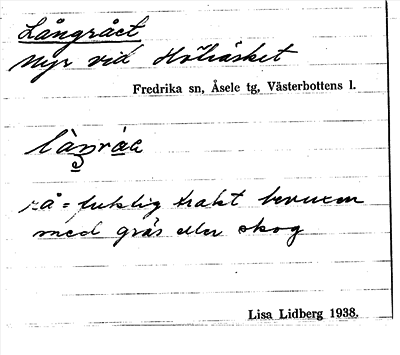 Långrået
Myr vid
Fredrika sn, Åsele tg, Västerbottens l.
rå = fuktig trakt bevuxen
med gräs eller skog
Lisa Lidberg 1938.